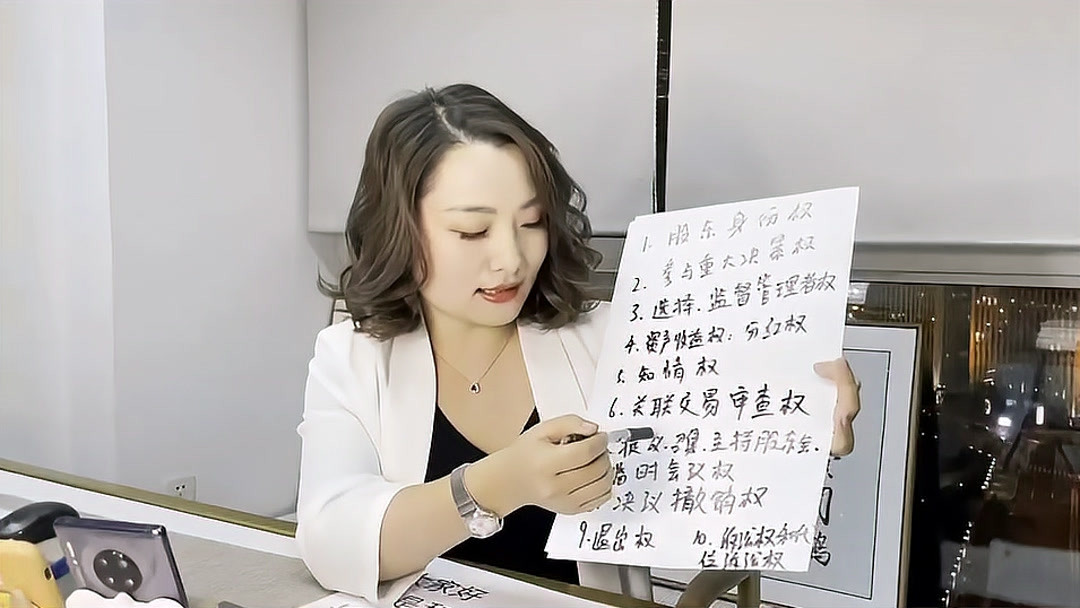 1. 股东身份权
2. 参与重大决策权
3. 选择.监督管理者权
4. 资产收益权: 分红权
5. 知情权
6. 关联交易审查权
提议.召集.主持股东会.
临时会议权
决议撤销权
9.退出权
10. 诉讼权和代
位诉讼权
家好